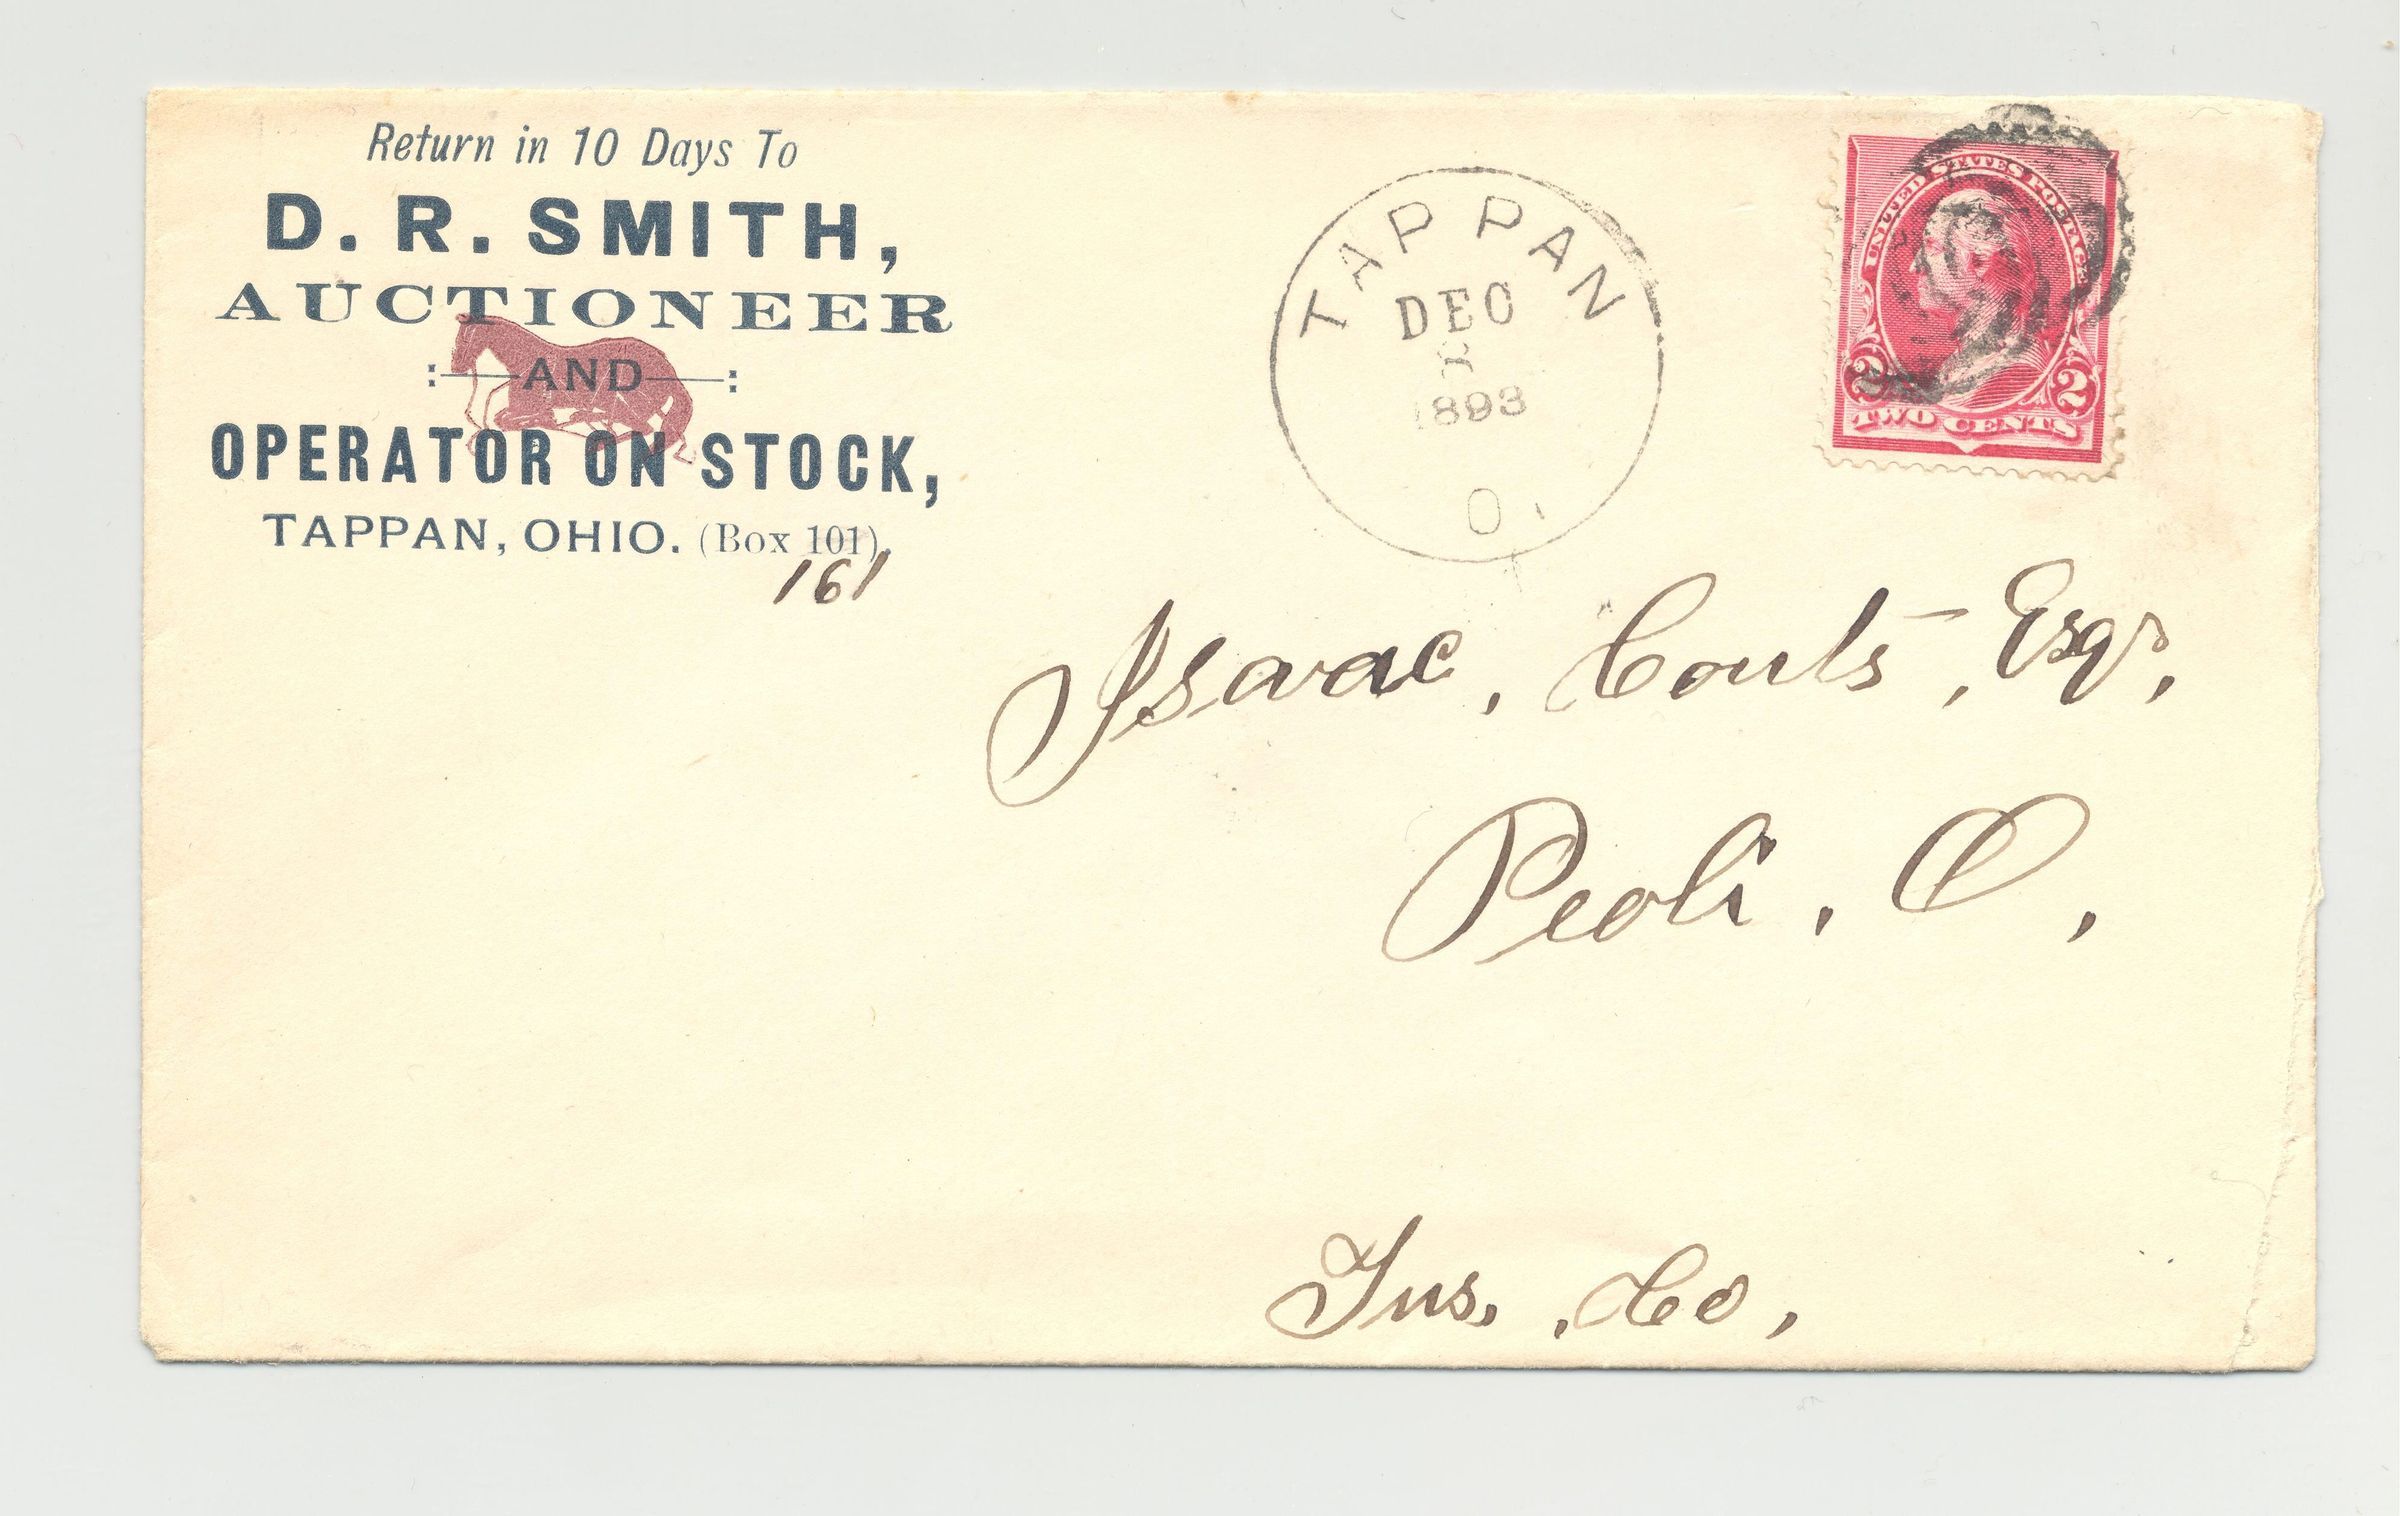 Return in 10 Days To
D. R. SMITH,
AUCTIONEER
AND
OPERATOR ON STOCK,
TAPPAN, OHIO. (Box 101),
161
TAPPAN
DEC
1893
O.
UNITED STATES POSTAGE
2 2
TWO CENTS
Isaac, Couts, Esqr,
Peoli, O,
Tus, Co,